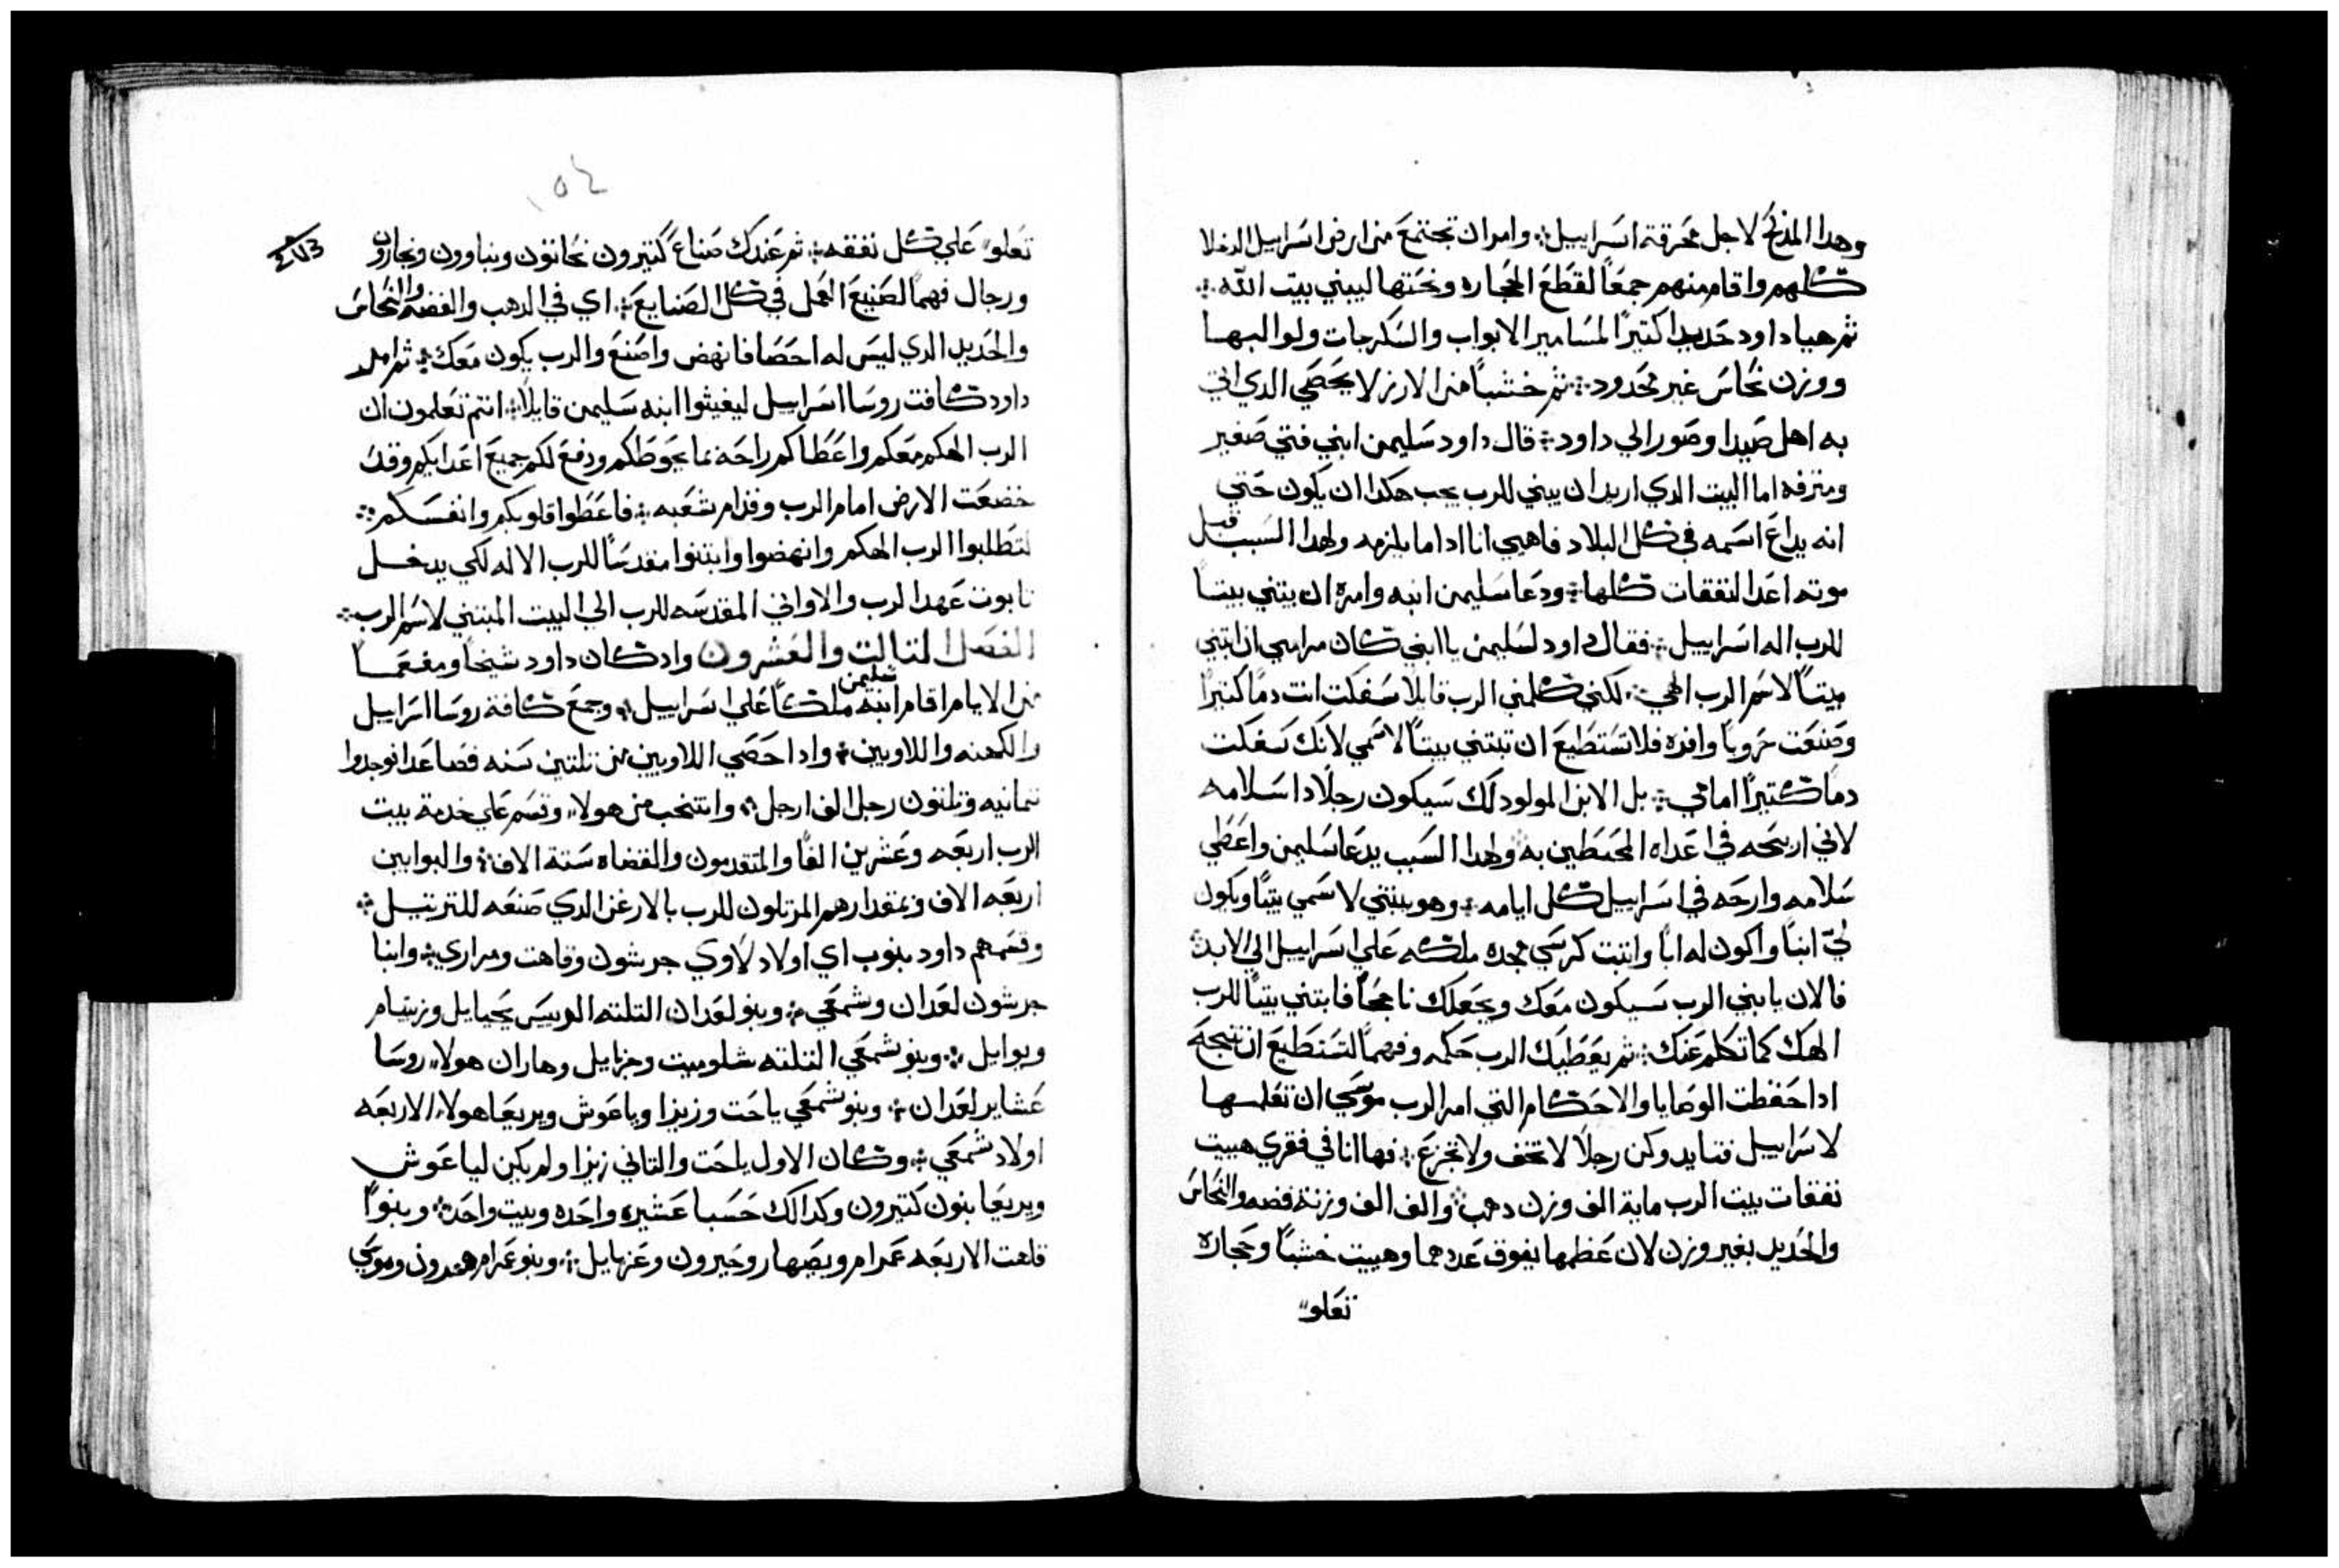 وهدا المذبح لاجل محرقة اسراييل ۞ وامر ان تجتمع من ارض اسراييل الدخلا
كلهم واقام منهم جمعاً لقطع الحجاره ونحتها ليبني بيت الله ۞
ثم هيا داود حديداً كتيراً لمسامير الابواب والسكرجات ولوالبها
ووزن نحاس غير محدود ۞ ثم خشباً من الارز لا يحصي الدي اتي
به اهل صيدا وصور الي داود ۞ قال داود سليمن ابني فتي صغير
ومترفه اما البيت الدي اريد ان يبني للرب يجب هكدا ان يكون حتي
انه يداع اسمه في كل البلاد فاهيي انا ادا ما يلزمه ولهدا السبب قبل
موته اعد النفقات كلها ۞ ودعا سليمن ابنه وامره ان يبتني بيتاً
للرب اله اسراييل ۞ فقال داود لسليمن يا ابني كان مرامي ان ابتني
بيتاً لاسم الرب الهي ۞ لكني كلمني الرب قايلاً سفكت انت دماً كتيراً
وصنعت حروباً وافره فلا تستطيع ان تبتني بيتاً لاسمي لانك سفكت
دماً كتيراً امامي ۞ بل الابن المولود لك سيكون رجلاً دا سلامه
لاني اريحه في اعداه المحتطين به ولهدا السبب يدعا سليمن واعطي
سلامه وارحه في اسراييل كل ايامه ۞ وهو يبتني لاسمي بيتاً ويكون
لي ابناً واكون له اباً واتبت كرسي مجده ملكه علي اسراييل الي الابد ۞
فالان يا بني الرب سيكون معك ويجعلك ناجحاً فابتني بيتاً للرب
الهك كما تكلم عنك ۞ ثم يعطيك الرب حكمه وفهماً لتستطيع ان تنجح
ادا حفظت الوصايا والاحكام التي امر الرب موسي ان تعلمها
لاسراييل فتايد وكن رجلاً لا تخف ولا تجزع ۞ فها انا في فقري هييت
نفقات بيت الرب ماية الف وزن دهب ۞ والف الف وزنة فضه والنحاس
والحديد بغير وزن لان عظمها يفوق عددهما وهييت خشباً وحجاره
تعلو
١٥٤
تعلو علي كل نفقه ۞ ثم عندك صناع كتيرون نحاتون وبناوون ونجارون
ورجال فهما لصنيع العمل في كل الصنايع ۞ اي في الدهب والفضه والنحاس
والحديد الدي ليس له احصا فانهض واصنع والرب يكون معك ۞ ثم امر
داود كافت روسا اسراييل ليغيثوا ابنه سليمن قايلاً ۞ انتم تعلمون ان
الرب الهكم معكم واعطاكم راحه بما يحوطكم ودفع لكم جميع اعدايكم وقد
خضعت الارض امام الرب وقدام شعبه ۞ فاعطوا قلوبكم وانفسكم ۞
لتطلبوا الرب الهكم وانهضوا وابتنوا مقدساً للرب الاله لكي يدخل
تابوت عهد الرب والاواني المقدسه للرب الي البيت المبتني لاسم الرب ۞
الفصل التالت والعشرون وادكان داود شيخاً ومفعماً
من الايام اقام ابنه سليمن ملكاً علي اسراييل ۞ وجمع كافة روسا اسراييل
والكهنه واللاويين ۞ وادا حصي اللاويين من تلتين سنه فصاعداً فوجدوا
تمانيه وتلتون رجل الف ارجل ۞ وانتخب من هولاء وقسم علي خدمة بيت
الرب اربعه وعشرين الفاً والمتقدمون والقضاه ستة الاف ۞ والبوابين
اربعه الاف وبمقدارهم المرتلون للرب بالارغن الدي صنعه للترتيل ۞
وقسمهم داود بنوب اي اولاد لاوي جرشون وقاهت ومراري ۞ وابنا
جرشون لعدان وشمعي ۞ وبنو لعدان التلته الرييس يحيايل وزيتام
ويوايل ۞ وبنو شمعي التلته شلوميت وحزايل وهاران هولاء روسا
عشاير لعدان ۞ وبنو شمعي ياحت وزيزا وياعوش ويريعا هولاء الاربعه
اولاد شمعي ۞ وكان الاول ياحت والتاني زيزا ولم يكن لياعوش
ويريعا بنون كتيرون وكدالك حسبا عشيره واحده وبيت واحد ۞ وبنوا
قاهت الاربعه عمرام ويصهار وحبرون وعزيايل ۞ وبنو عمرام هرون وموسي